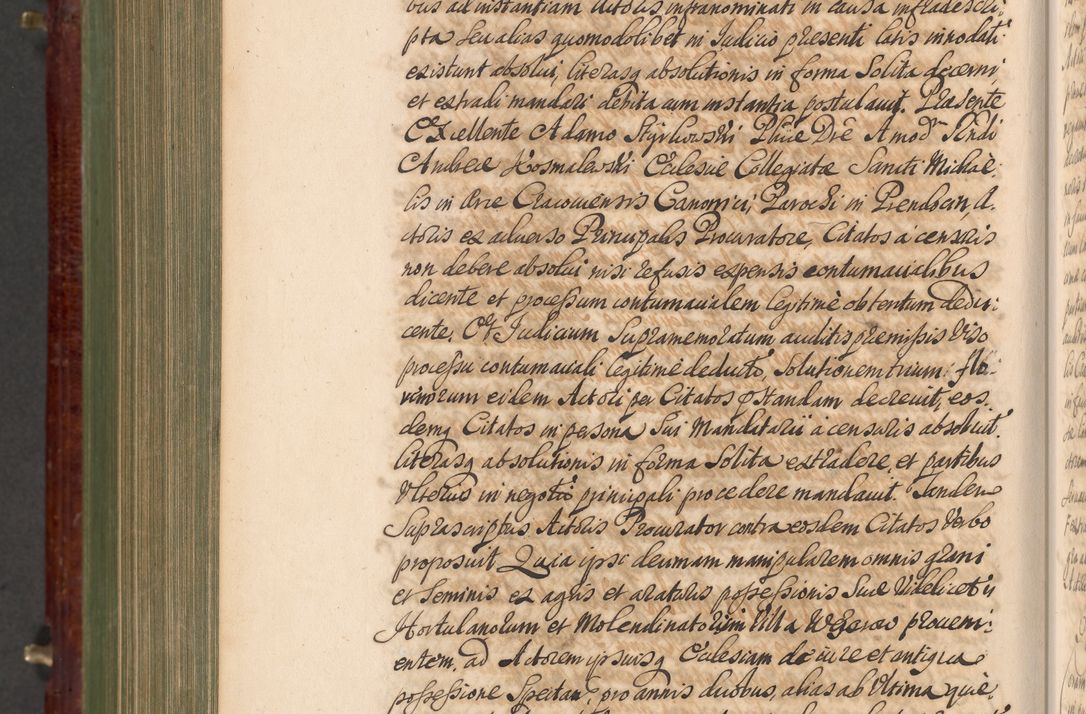 bus ad instantiam Actoris infranominati in causa infradescri:
pta seu alias quomodolibet in Judicio presenti latis innodati
existunt absolui, literasq absolutionis in forma Solita decerni,
et extradi mandari debita cum instantia postulauit. Præsente
Excellente Adamo Styrkowski Phiæ Dre Amodm Rndi
Andreæ Kosmalewski Ecclesiæ Collegiatæ Sancti Michaë:
lis in Arce Cracouiensis Canonici, Parochi in Prendocin, A:
ctoris ex aduerso Principalis Procuratore, Citatos a censuris
non debere absolui nisi refusis expensis contumacialibus
dicente et processum contumacialem legitimè obtentum dedu:
cente. Et Judicium Supramemoratum auditis premissis Viso
processu contumaciali legitimè deducto, Solutionem trium flo:
renorum eidem Actori per Citatos pstandam decreuit, eos
demq Citatos in persona Sui Mandatarii a censuris absoluit
literasq absolutionis in forma Solita extradere, et partibus
Vlterius in negotio principali procedere mandauit. Tandem
Suprascriptus Actoris Procurator contra eosdem Citatos Verbo
proposuit Quia ipsi decimam manipularem omnis grani
et Seminis ex agris et araturis possessionis Suæ Videlicet
Hortulanorum et Molendinatorum Villa proueni:
entem, ad Actorem ipsiusq Ecclesiam de iure et antiqua
possessione Spectan, pro annis duobus, alias ab Vltima quie: